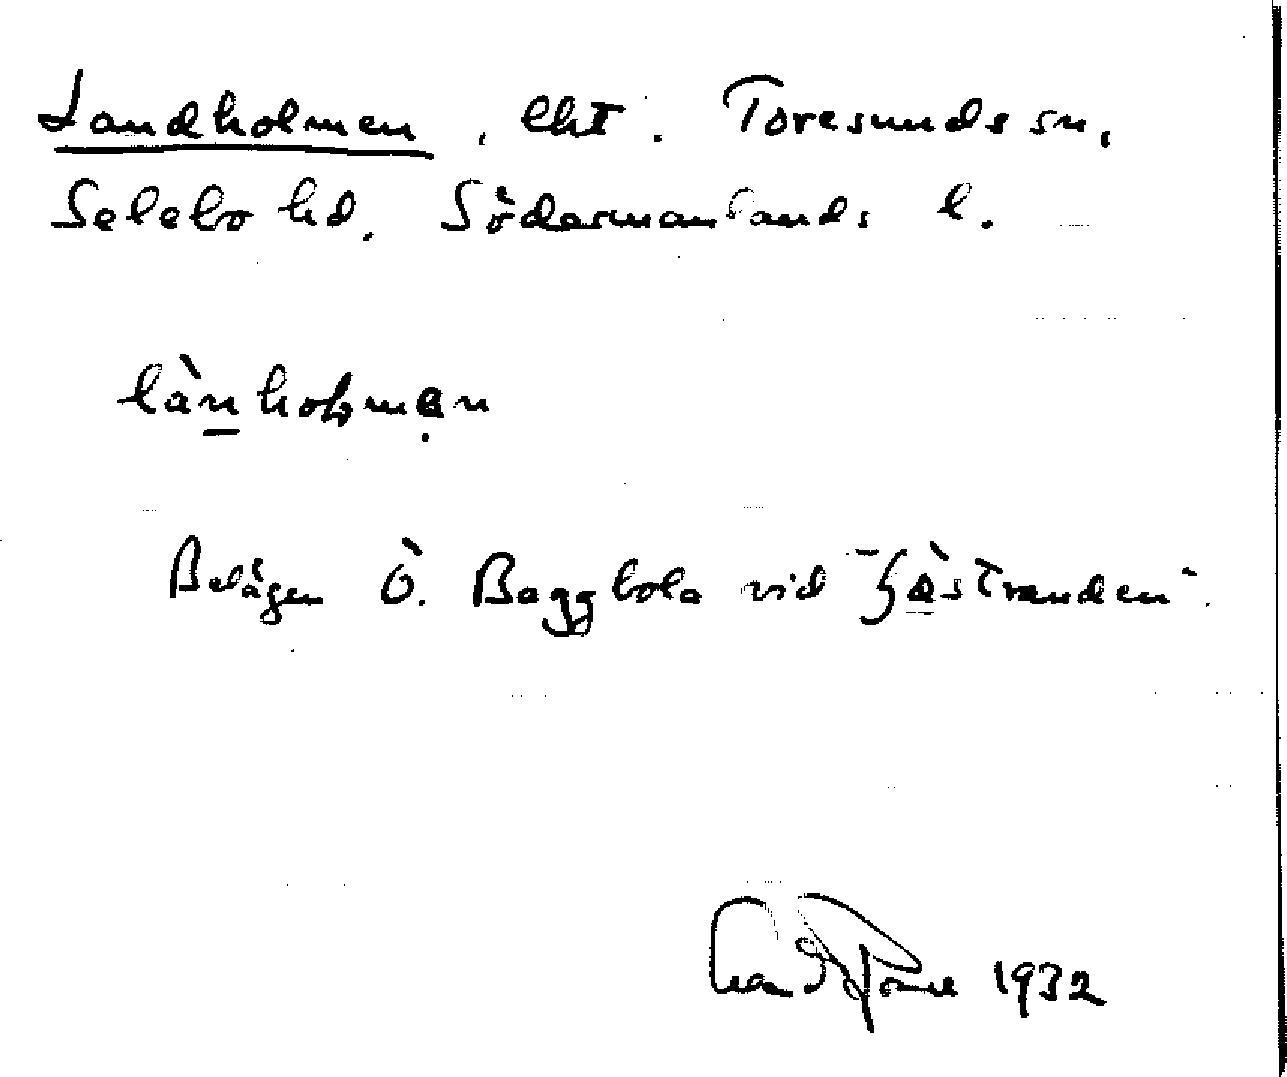 Landholmen, lht. Toresunds sn,
Selebo hd. Södermanlands l.
lànholmən
Belägen Ö. Baggbola vid
1932